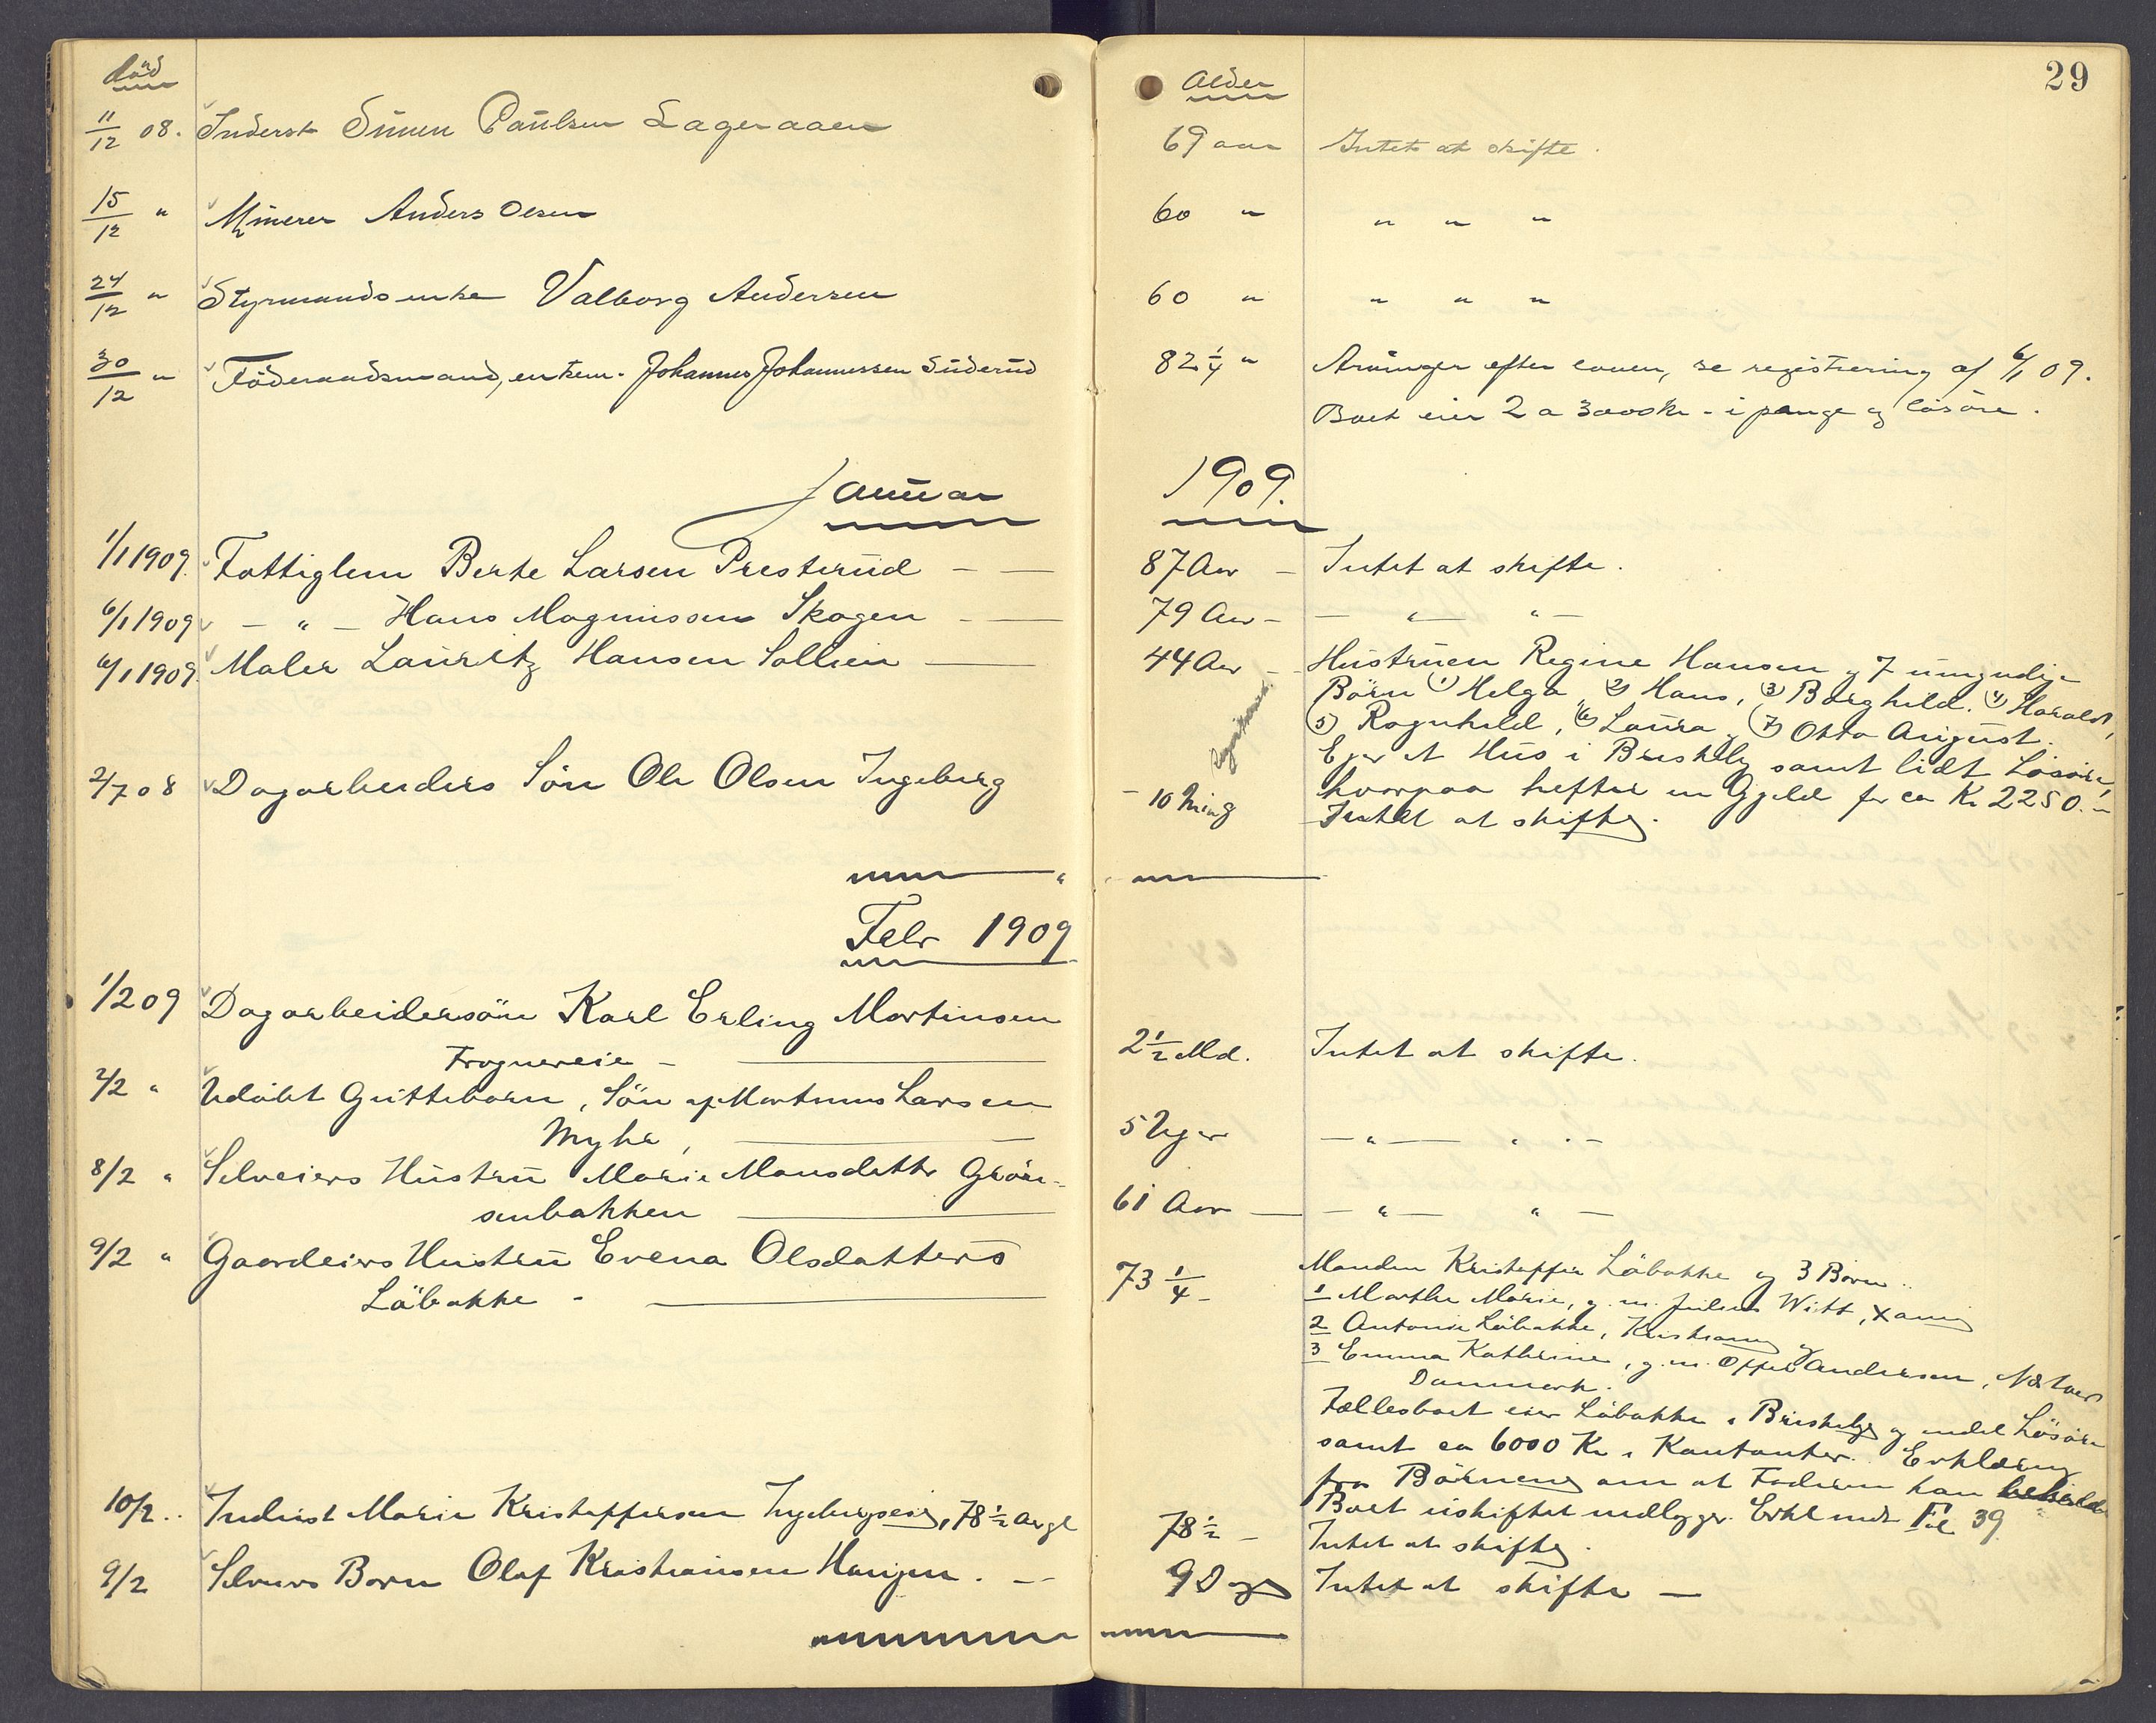 död
Alder
29
11/12 08. Inderst Simen Paulsen Lageraaen 69 aar Intet at skifte.
15/12 " Minerer Anders Olsen 60 " " " "
24/12 " Styrmandsenke Valborg Andersen 60 " " " "
30/12 " Föderaadsmand, enkem. Johannes Johannessen Suderud 82 1/4 " Arvinger efter loven, se registrering af 6/1 09.
Boet eier 2 a 3000 kr - i penge og lösöre.
Januar 1909.
1/1 1909. Fattiglem Berte Larsen Presterud — — 87 Aar — Intet at skifte.
6/1 1909 — " — Hans Magnussen Skogen — — 79 Aar — — " — " —
6/1 1909. Maler Lauritz Hansen Sollien — 44 Aar — Hustruen Regine Hansen og 7 umyndige
Börn (1) Helga, (2) Hans, (3) Borghild. (4) Harald,
(5) Ragnhild, (6) Laura, (7) Otto August.
Ejer et Hus i Buskeby samt lidt Lösöre,
hvorpaa hefter en Gjeld for ca Kr 2250.-
2/7 08 Dagarbeiders Sön Ole Olsen Ingeberg — 10 Intet at skifte.
Febr 1909
1/2 09 Dagarbeidersön Karl Erling Martinsen
Frognereie — 2 1/2 Md. Intet at skifte.
2/2 " Udöbt Guttebarn, Sön af Martinus Larsen
Myhre, 5 Uger — " — " —
8/2 " Selveiers Hustru Marie Monsdatter Grön-
senbakken 61 Aar — — " — " —
9/2 " Gaardeiers Hustru Evena Olsdatter
Löbakke - 73 1/4 - Manden Kristoffer Löbakke og 3 Børn.
1 Marthe Marie, g. m. Julius Witt, Xania
2 Antonie Löbakke, Kristiania og
3 Emma Kathrine, g. m. Andersen,
Danmark.
Fællesboet eier Löbakke i Buskeby og endel Lösöre
samt ca 6000 Kr i Kontanter. Erklæring
fra Börnene om at Faderen kan
Boet uskiftet vedlegger. Erkl med Fol 39
10/2 .. Inderst Marie Kristoffersen Ingebergseie, 78 1/2 Aar gl 78 1/2 — Intet at skifte.
9/2 Selveiers Barn Olaf Kristiansen Haugen. — 9 Dage Intet at skifte —